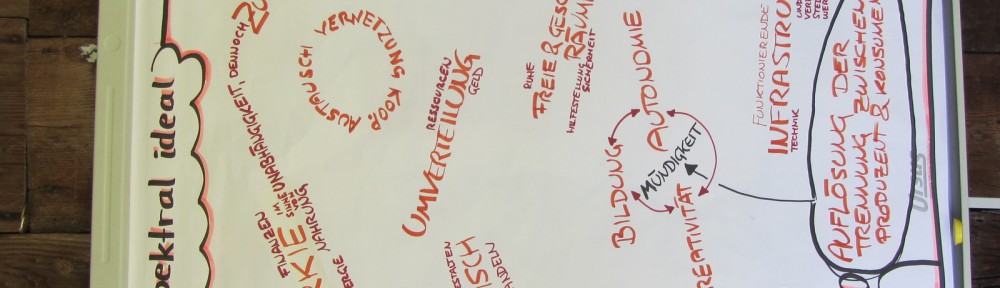 pektral ideal
FINANZEN IM
SINNE VON
UNABHÄNGIGKEIT, DENNOCH ZU
RKIE
ERGIE NAHRUNG
AUSTAUSCH VERNETZUNG KOOP.
RESSOURCEN
UMVERTEILUNG
GELD
ESTALTEN
ISCH
ANDELN
RUHE
FREIE & GESC
RÄUM
HILFESTELLUNG SICHERHEIT
BILDUNG
AUTONOMIE
MÜNDIGKEIT
REATIVITÄT
FUNKTIONIERENDE
INFRASTRU
TECHNIK
UND
VER
STE
WER
AUFLÖSUNG DER
TRENNUNG ZWISCHEN
PRODUZENT & KONSUMEN
Ursus